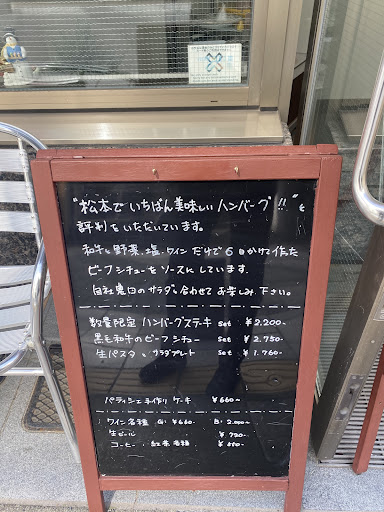 "松本でいちばん美味しいハンバーグ!!"と
評判をいただいています。
和牛と野菜、塩、ワインだけで6日かけて作った
ビーフシチューをソースにしています。
自社農園のサラダと合わせてお楽しみ下さい。
数量限定 ハンバーグステキ set ¥2.200-
黒毛和牛のビーフシチュー set ¥2.750-
生パスタ、サラダプレート set ¥1.760-
パティシエ手作り ケーキ ¥660-
ワイン各種 G:¥660- B:2.000~
生ビール ¥
コーヒー、紅茶各種 ¥